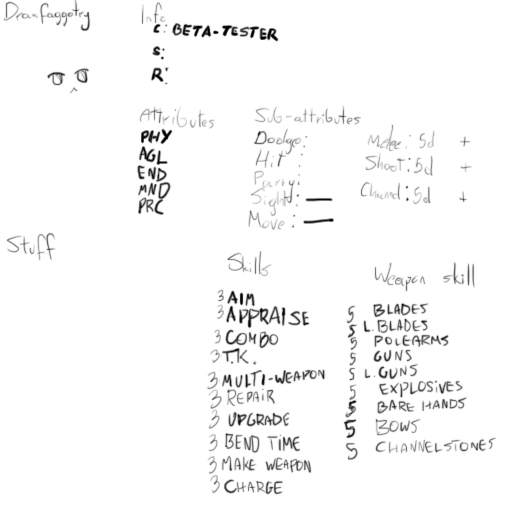 Drawfaggotry
Info
C: BETA-TESTER
S:
R:
Attributes
PHY
AGL
END
MND
PRC
Sub-attributes
Dodge:
Hit :
Parry:
Sight:
Move :
Melee: 5d +
Shoot: 5d +
Channel: 5d +
Stuff
Skills
3 AIM
3 APPRAISE
3 COMBO
3 T.K.
3 MULTI-WEAPON
3 REPAIR
3 UPGRADE
3 BEND TIME
3 MAKE WEAPON
3 CHARGE
Weapon skill
5 BLADES
5 L.BLADES
5 POLEARMS
5 GUNS
5 L.GUNS
5 EXPLOSIVES
5 BARE HANDS
5 BOWS
5 CHANNELSTONES